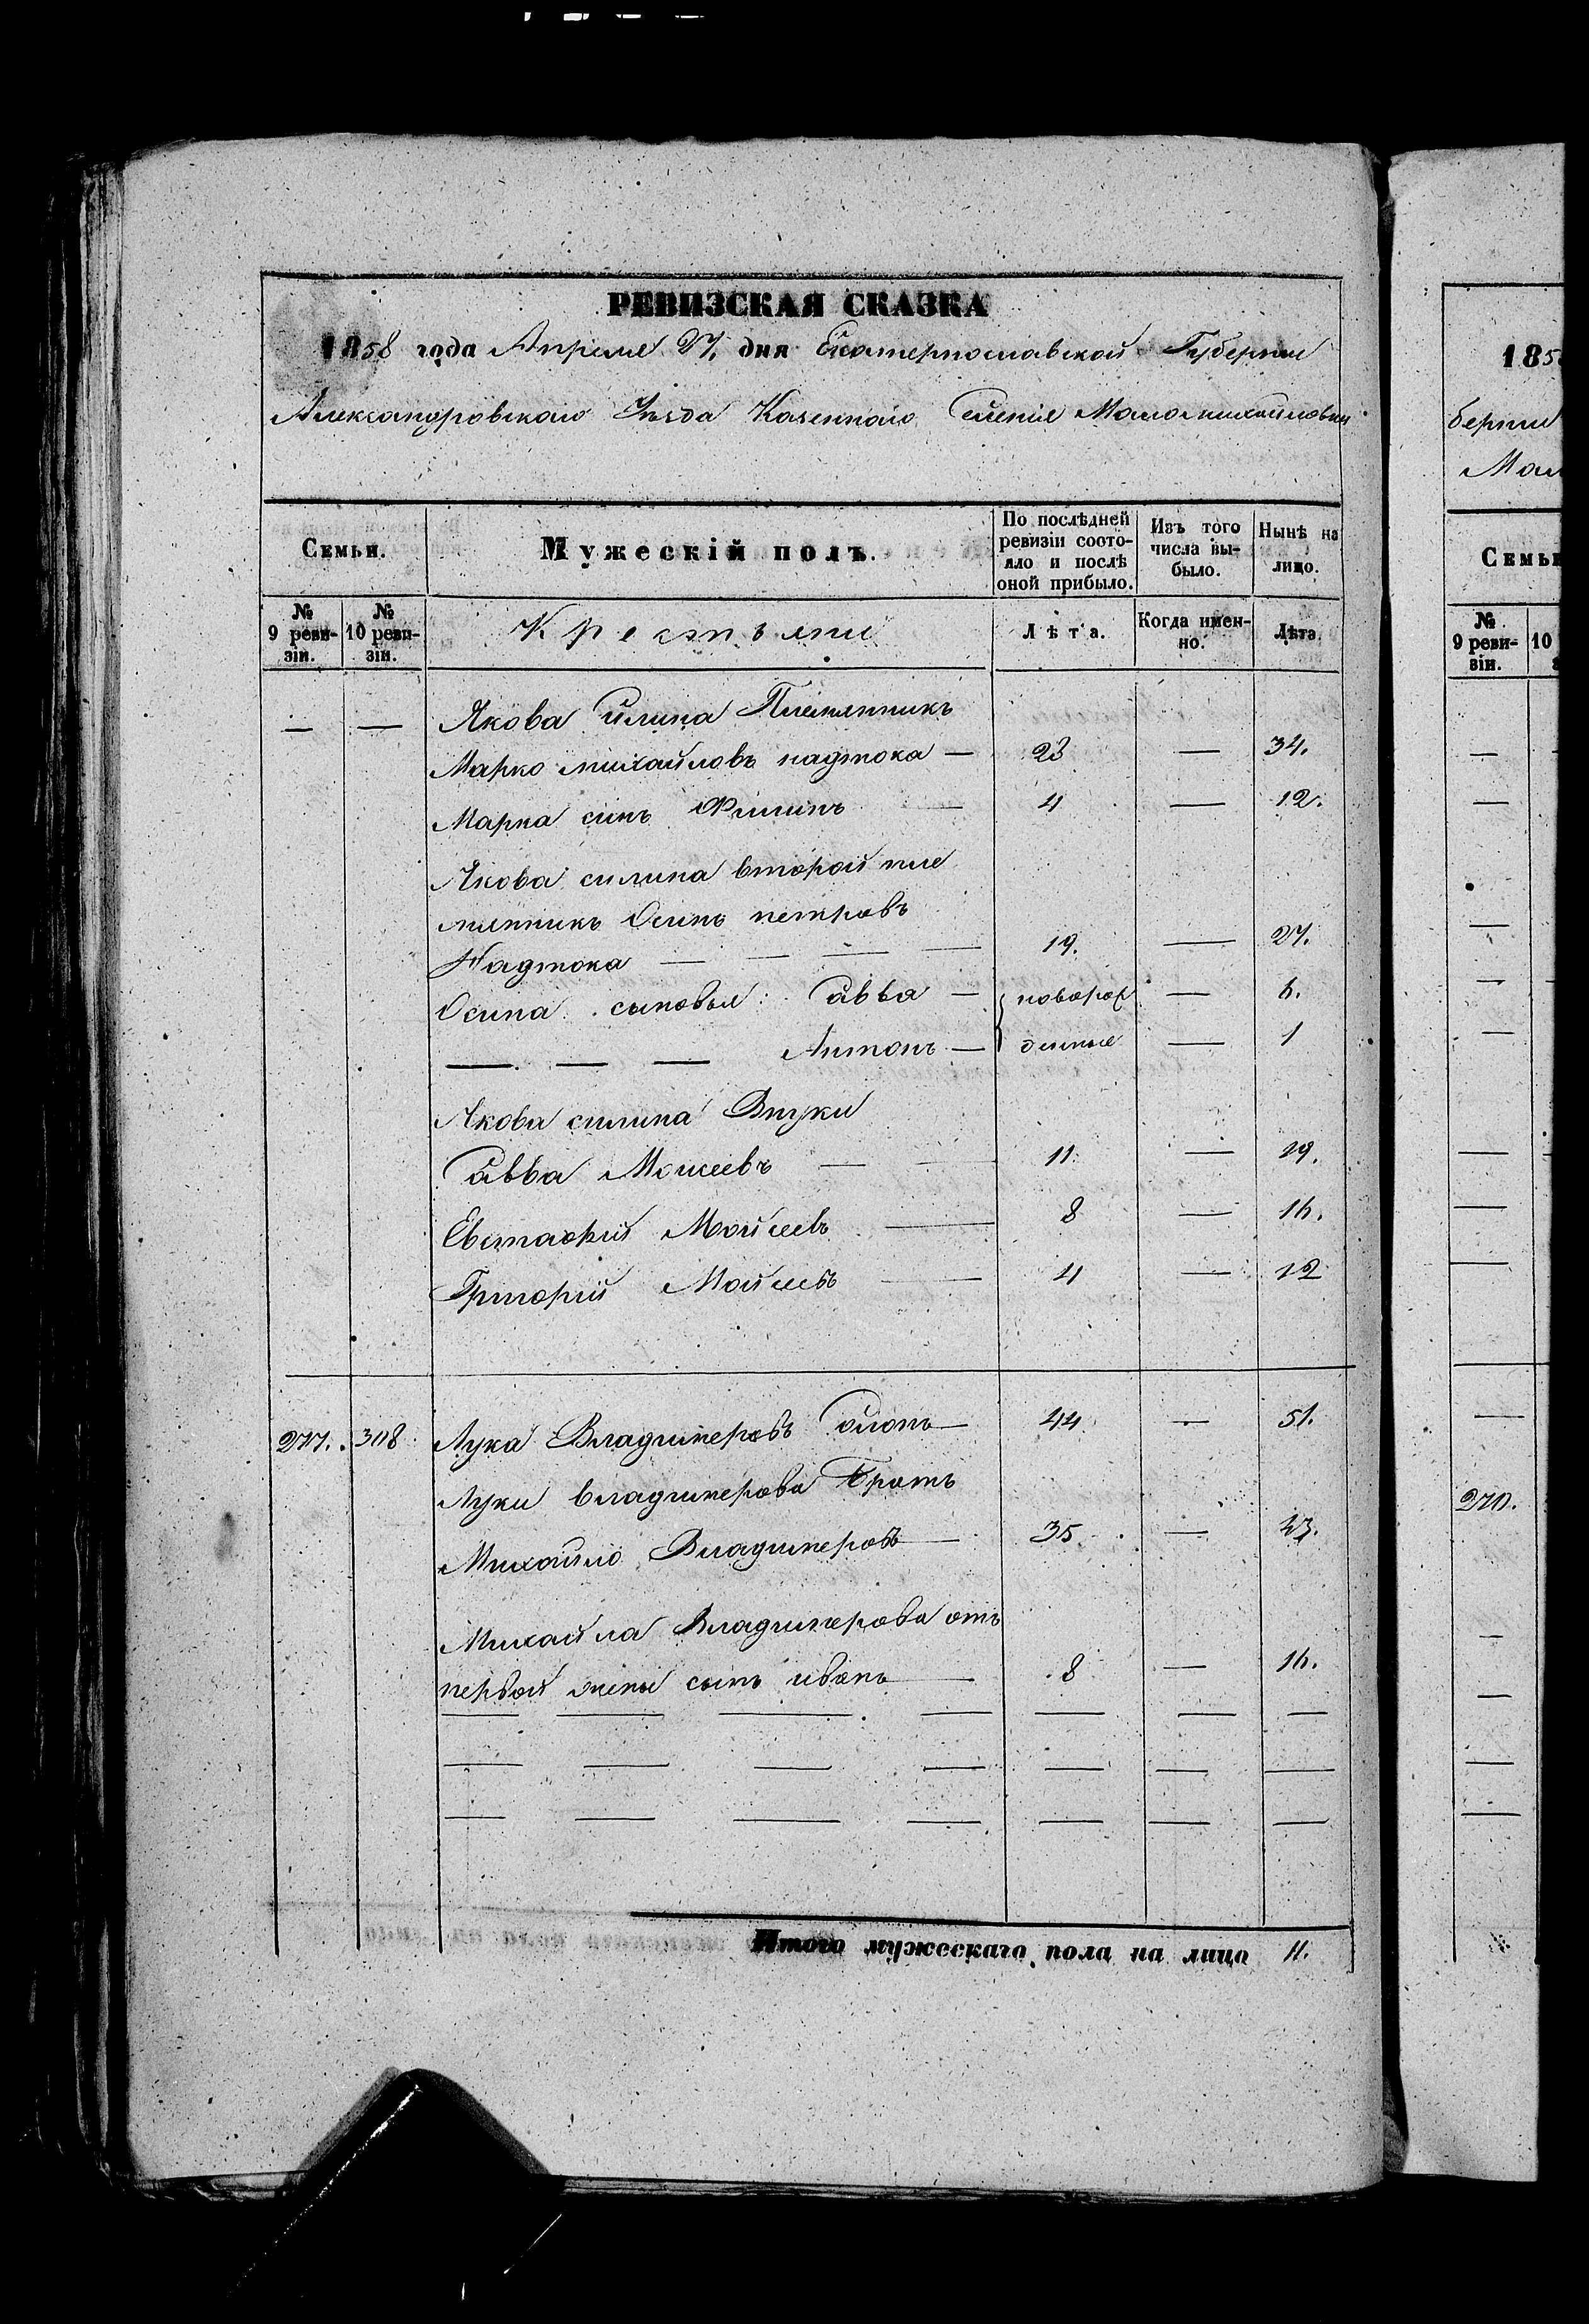 РЕВИЗСКАЯ СКАЗКА
1858 года Апреля 27, дня Екатеринославской Губернии
Александровскаго Уѣзда Казеннаго Селенія Маломихайловки
Семьи.
Мужескій полъ.
По послѣдней ревизіи состояло и послѣ оной прибыло.
Изъ того числа выбыло.
Нынѣ на лицо.
№ 9 ревизіи.
№ 10 ревизіи.
Крестьяне
Лѣта.
Когда именно.
Лѣта.
— — Якова Силина Племянникъ
Марко михайловъ надтока — 23 — 34.
Марка синъ Филипъ — 4 — 12.
Якова силина второй пле
мянникъ Осипъ петровъ
Надтока — — — — 19. — 27.
Осипа сыновья: Савва — новорож — 6.
— — — Антонъ — денные — 1
Якова силина Внуки
Савва Моисеевъ — — 11 — 19.
Евстафий Мойсеевъ — 8 — 16.
Григорий Мойсеевъ — 4 — 12
277. 308 Лука Владимеровъ — 44 — 51.
Луки владимерова Братъ
Михайло Владимеровъ — 35. — 43.
Михайла Владимерова отъ
первой жены сынъ иванъ — 8 — 16.
— — — — — — —
— — — — — — —
— — — — — — —
Итого мужескаго пола на лицо 11.
185
берни
Мал
Семьи
№ 9 ревизіи.
10
270.